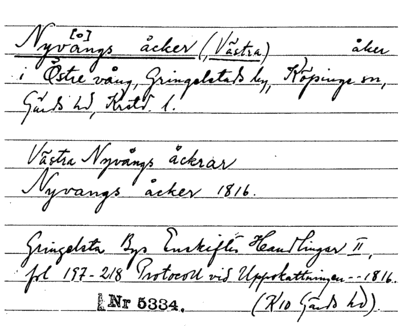 [o]
Nyvangs åcker (, Västra) åker
i Östre vång, Gringelstads by, Köpinge sn,
Gärds hd, Krist. l.
Västra Nyvångs åckrar
Nyvangs åcker 1816.
Gringelsta Bys Enskiftes Handlingar II,
fol 197-218 Protocoll vid Uppskattningen -- 1816.
Nr 5334. (K10 Gärds hd).